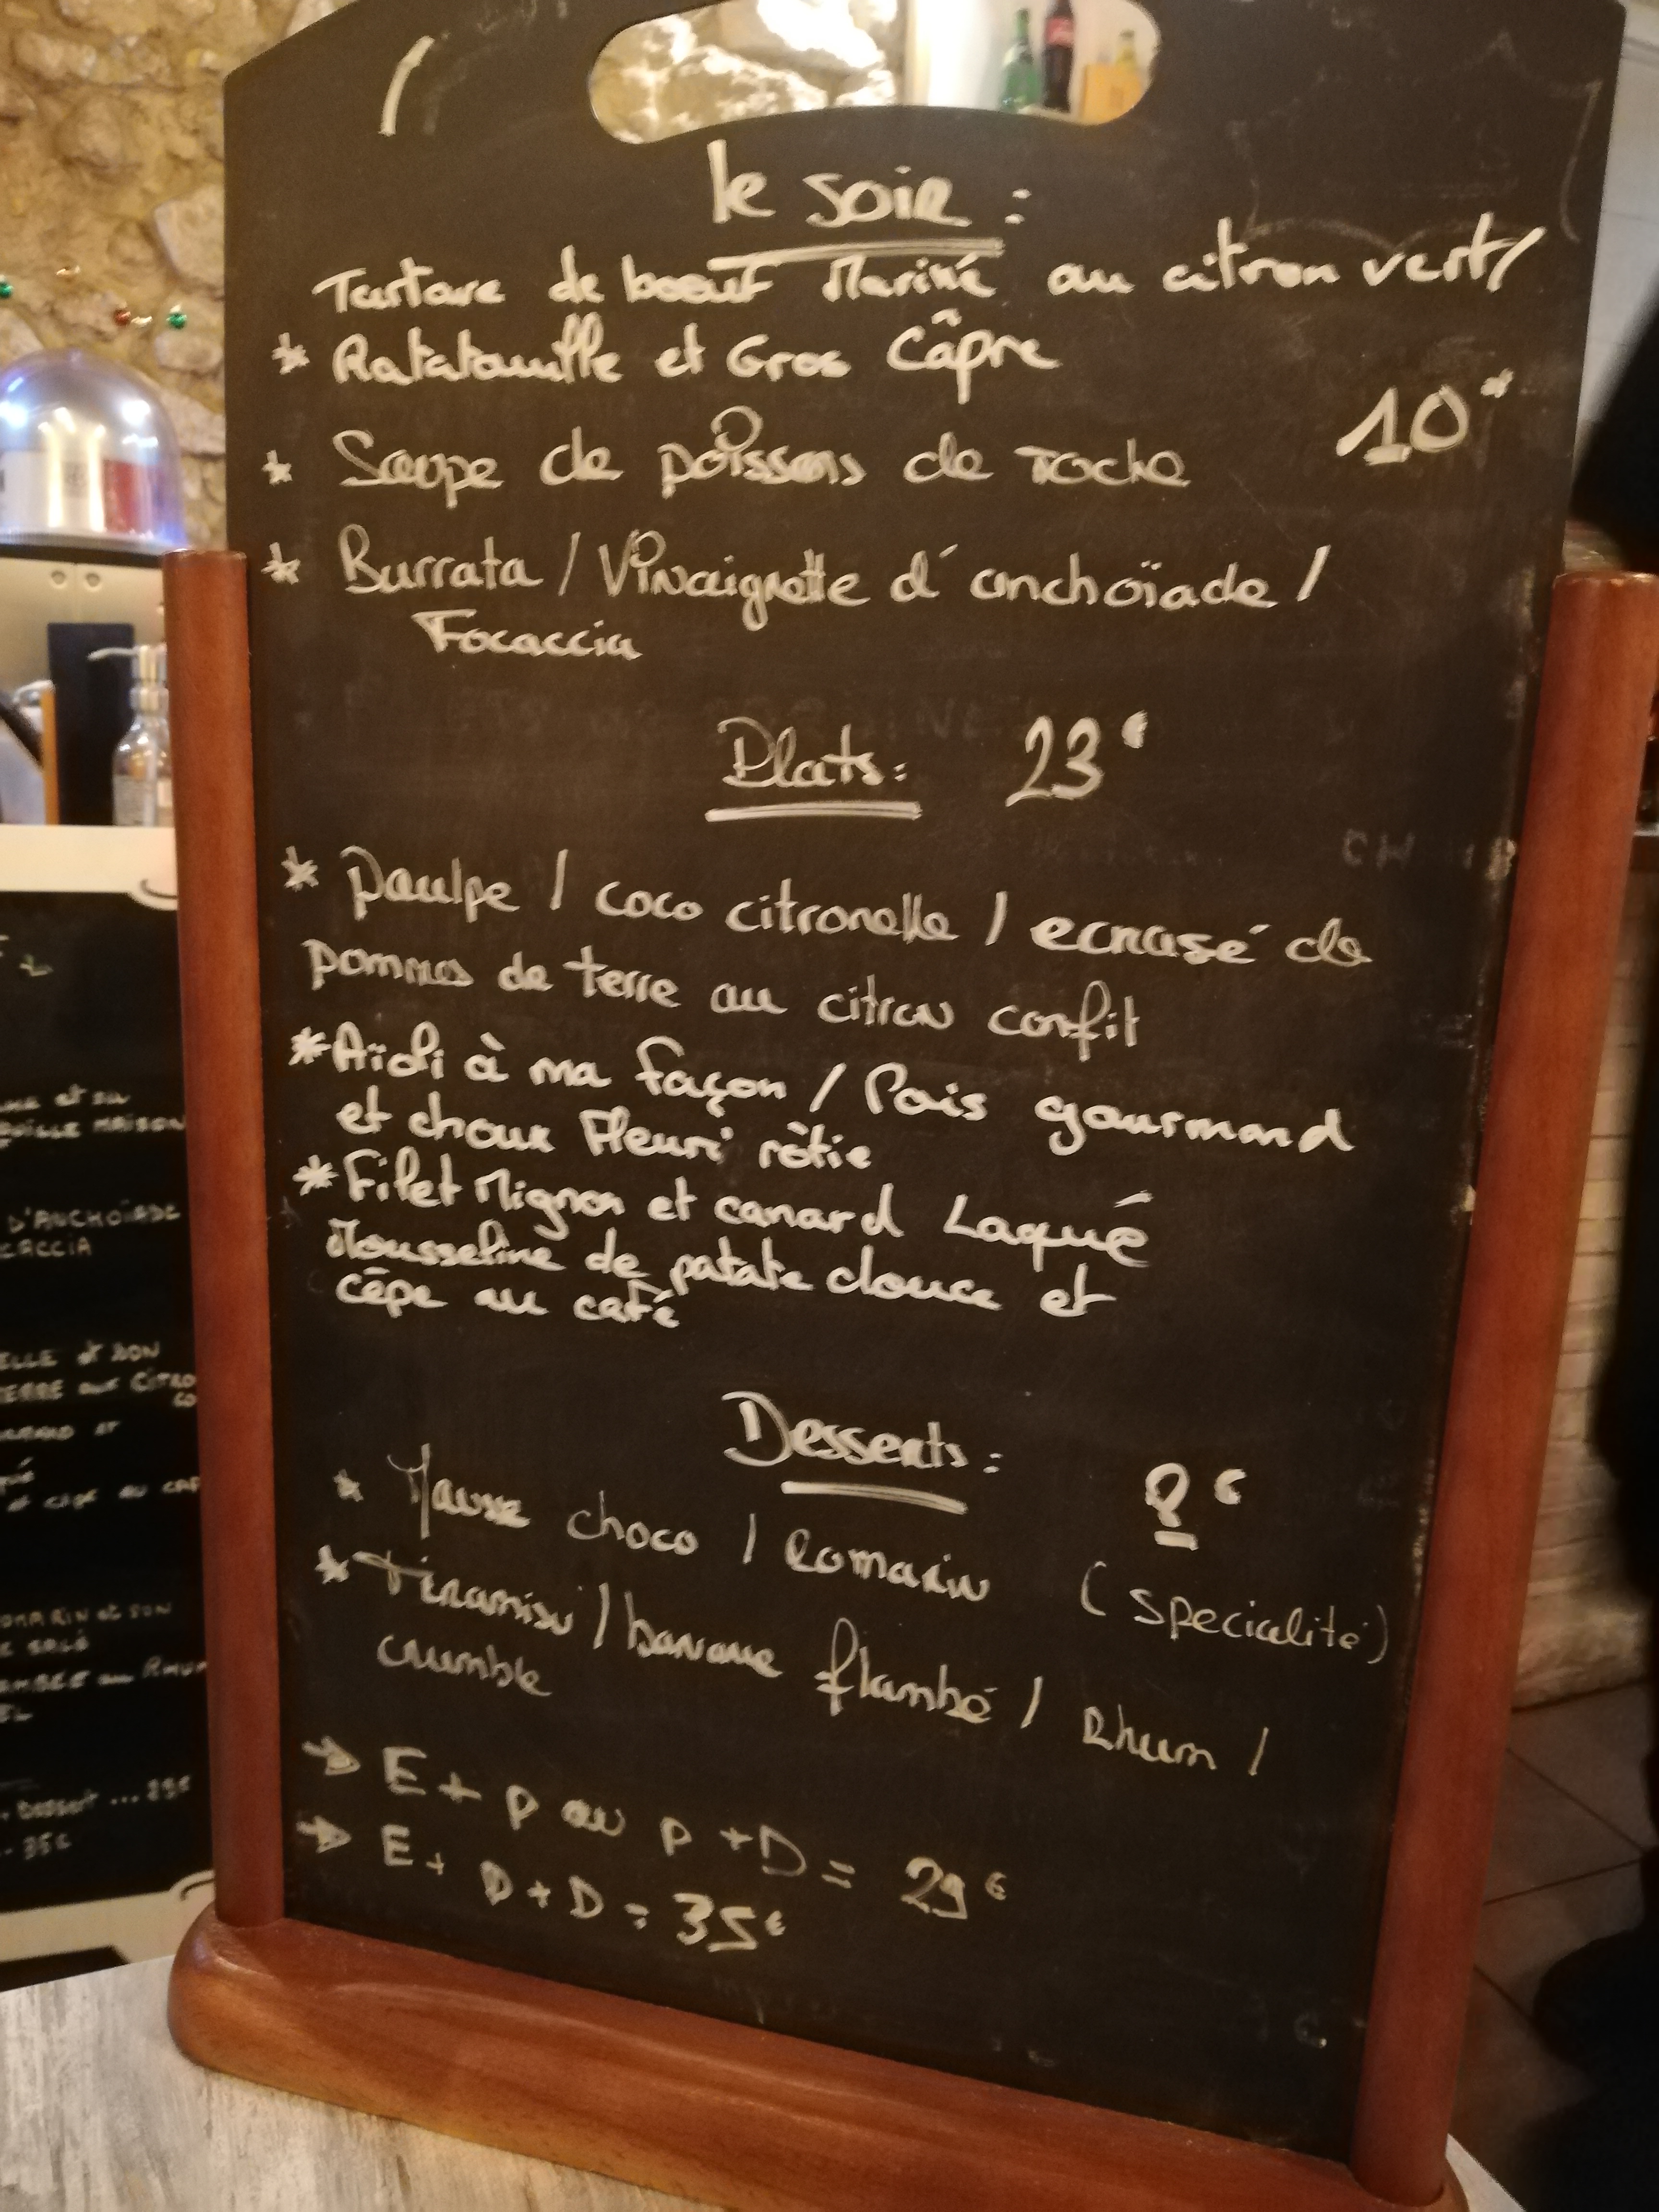 le soir :
Tartare de boeuf Mariné au citron vert/
* Ratatouille et Gros Câpre
10€
* Soupe de poissons de roche
* Burrata / Vinaigrette d'anchoïade /
Focaccia
Plats : 23€
* Poulpe / coco citronelle / ecrasé de
pommes de terre au citron confit
* Aïoli à ma façon / Pois gourmand
et choux Fleuri rôtie
* Filet Mignon et canard Laqué
Mousseline de patate douce et
cêpe au café
Desserts : 8€
* Mousse choco / Romarin (specialité)
* Tiramisu / banane flambé / Rhum /
crumble
→ E + P ou P + D = 29€
→ E + D + D = 35€
et sa
MAISON
D'ANCHOÏADE
ET SON
au
et son
salé
au Rhum
Dessert ... 29€
35€